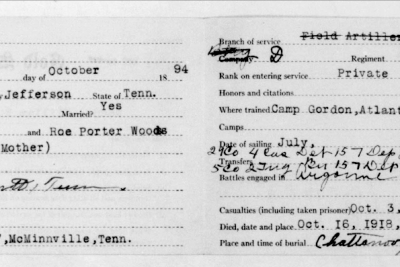 day of October 18 94
Jefferson State of Tenn.
Married? Yes
and Roe Porter Woods
Mother)
Tenn
McMinnville, Tenn.
Branch of service Field Artiller
Company D Regiment
Rank on entering service Private
Honors and citations
Where trained Camp Gordon, Atlant
Camps
Date of sailing July,
Transfers
29 Co 4 Cas Det 157 Dep
5 Co 2 157 Dep
Battles engaged in Argonne
Casualties (including taken prisoner) Oct. 3,
Died, date and place Oct 16, 1918,
Place and time of burial Chattanoo